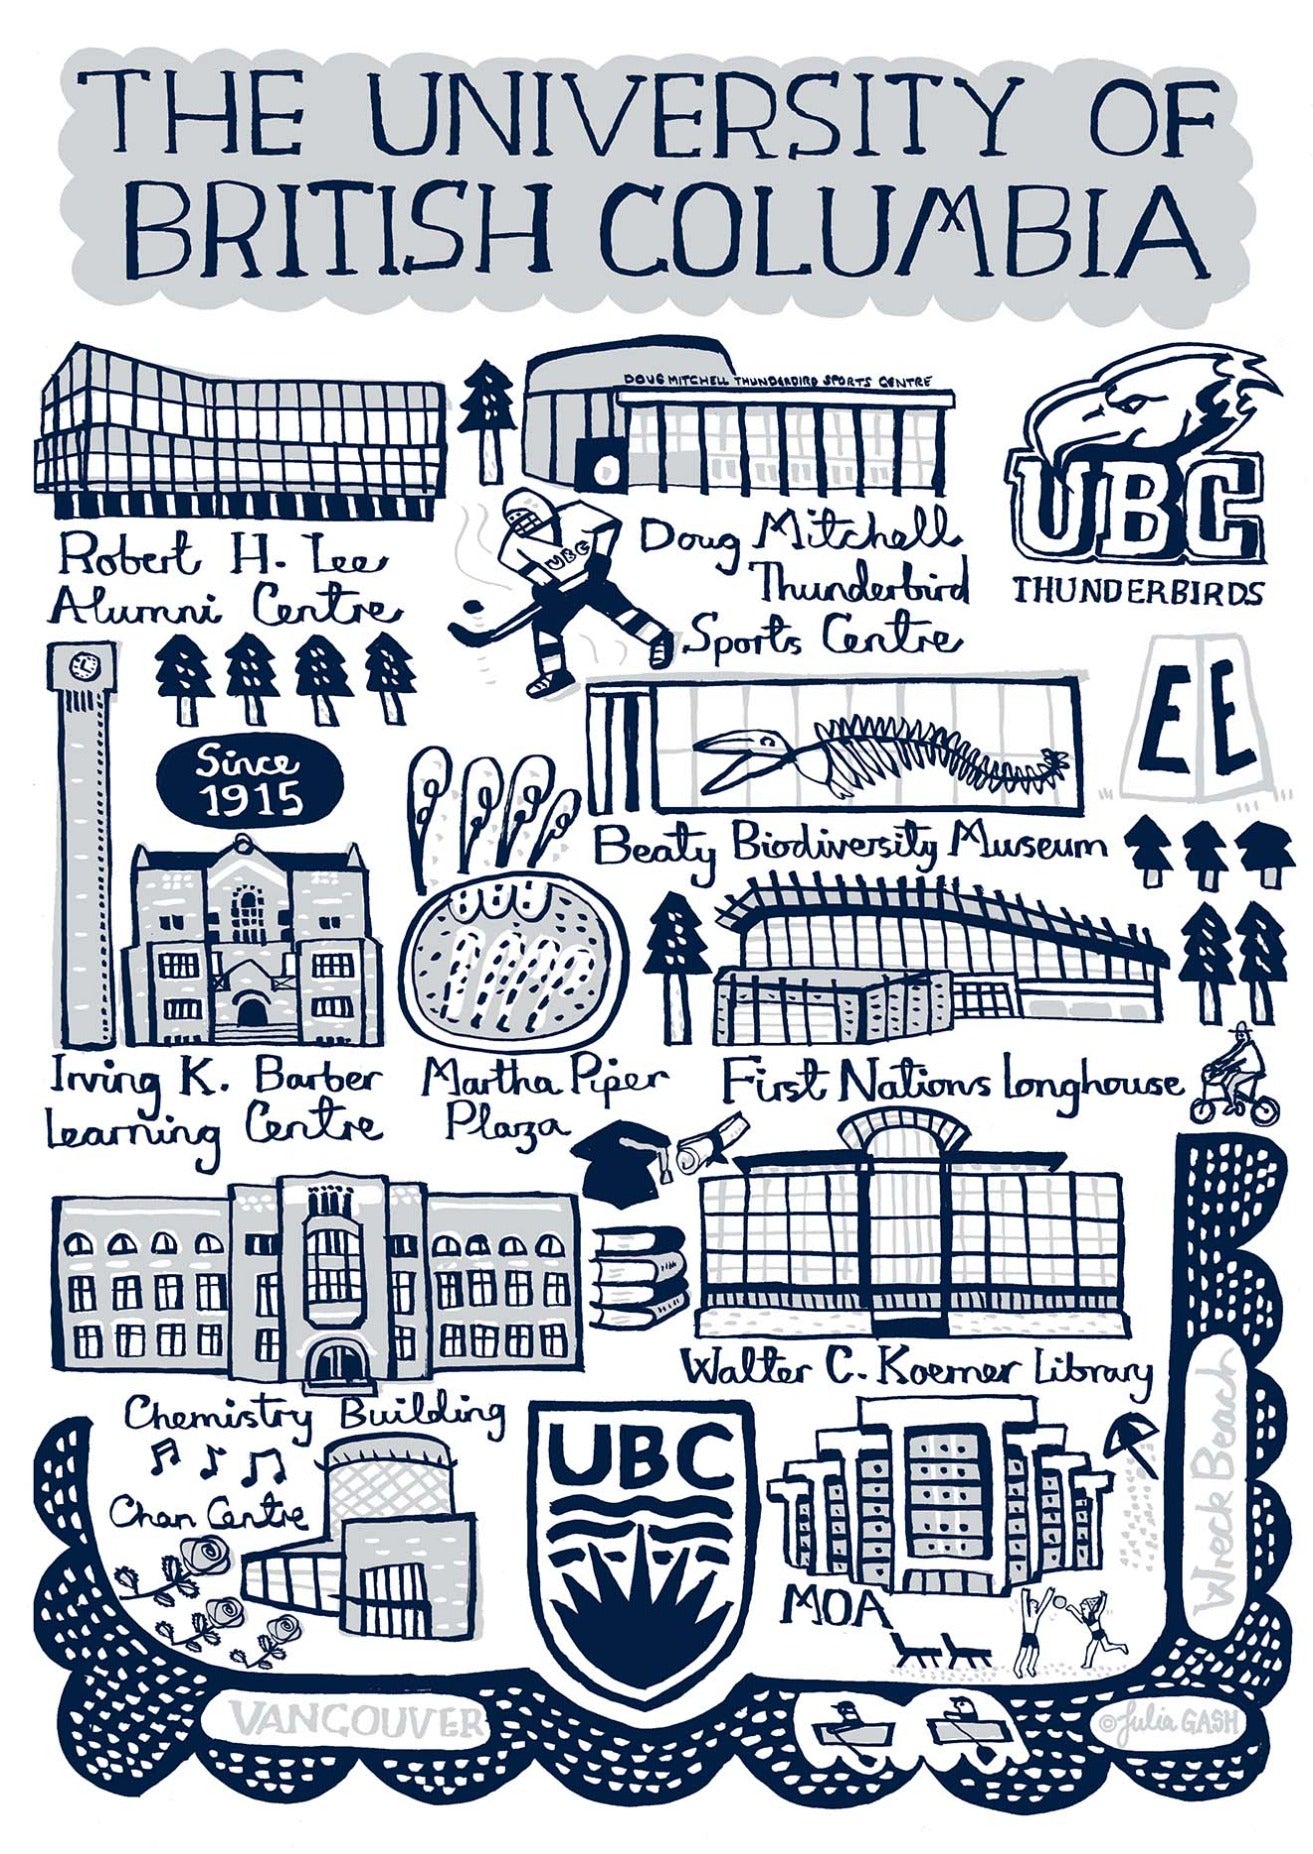 THE UNIVERSITY OF
BRITISH COLUMBIA
DOUG MITCHELL THUNDERBIRD SPORTS CENTRE
Robert H. Lee
Alumni Centre
UBC
Doug Mitchell
Thunderbird
Sports Centre
UBC
THUNDERBIRDS
Since
1915
EE
Beaty Biodiversity Museum
Irving K. Barber
Learning Centre
Martha Piper
Plaza
First Nations Longhouse
Walter C. Koerner Library
Chemistry Building
Chan Centre
UBC
MOA
Wreck Beach
VANCOUVER
©Julia GASH